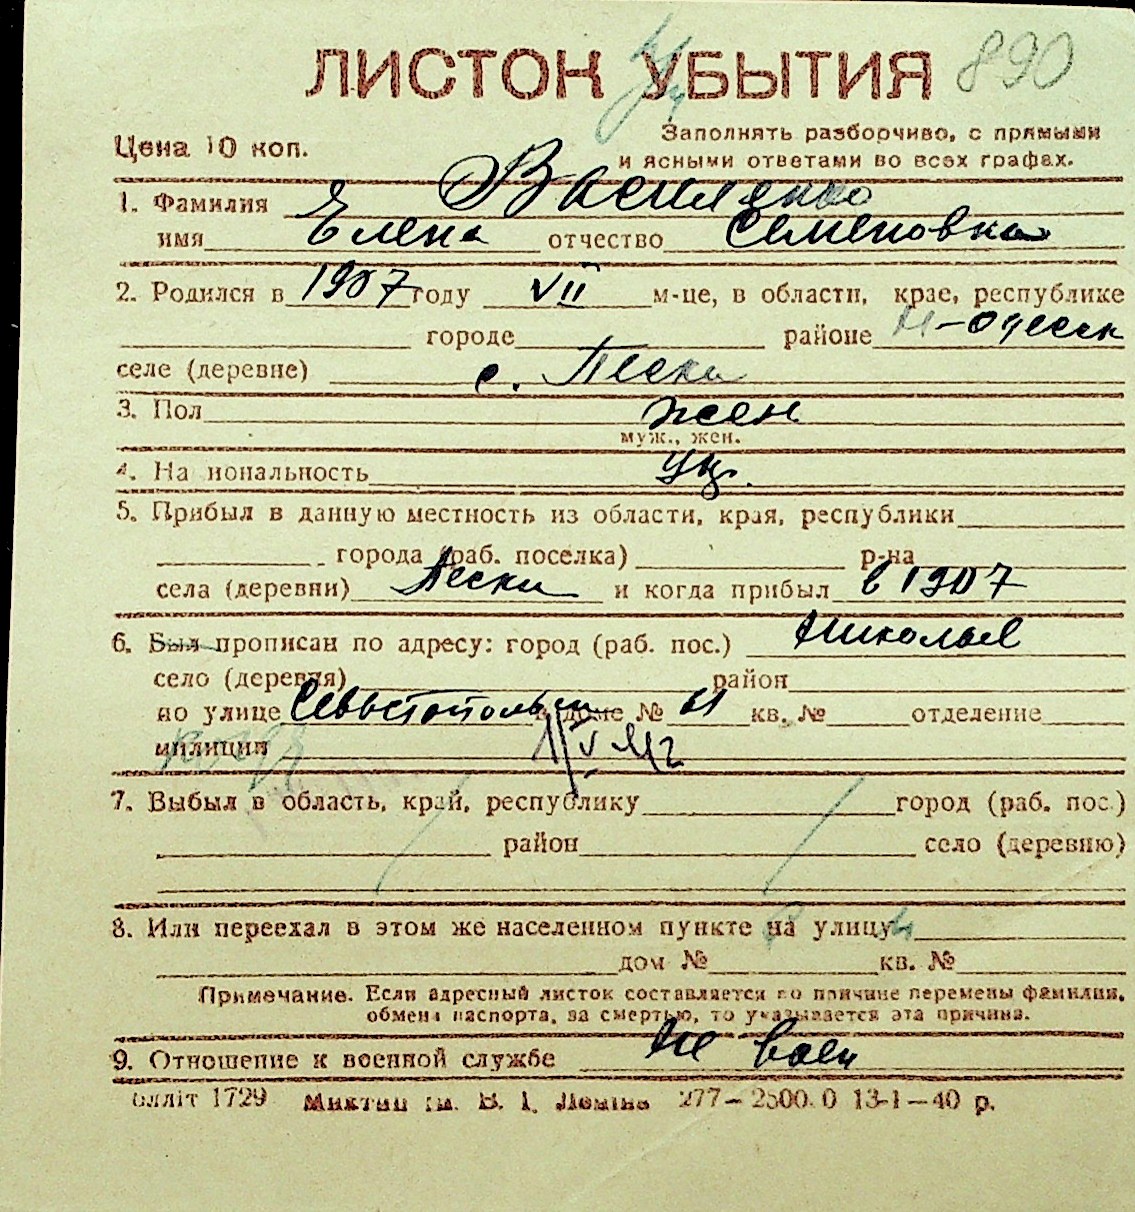 ЛИСТОК УБЫТИЯ 890
Цена 10 коп.
Заполнять разборчиво, с прямыми
и ясными ответами во всех графах.
1. Фамилия Василенко
имя Елена отчество Семеновна
2. Родился в 1907 году VII м-це, в области, крае, республике
городе районе Н-Одесск
селе (деревне) с. Пески
3. Пол жен
муж., жен.
4. На иональность Ук.
5. Прибыл в данную местность из области, края, республики
города (раб. поселка) р-на
села (деревни) Пески и когда прибыл в 1907
6. Был прописан по адресу: город (раб. пос.) Николаев
село (деревня) район
по улице Севастопольск в доме № 61 кв. № отделение
милиции
7. Выбыл в область, край, республику город (раб. пос.)
район село (деревню)
8. Или переехал в этом же населенном пункте на улицу
дом № кв. №
Примечание. Если адресный листок составляется по причине перемены фамилии,
обмена паспорта, за смертью, то указывается эта причина.
9. Отношение к военной службе не воен
блліт 1729 В. І. Леніна 277—2500.0 13-1—40 р.